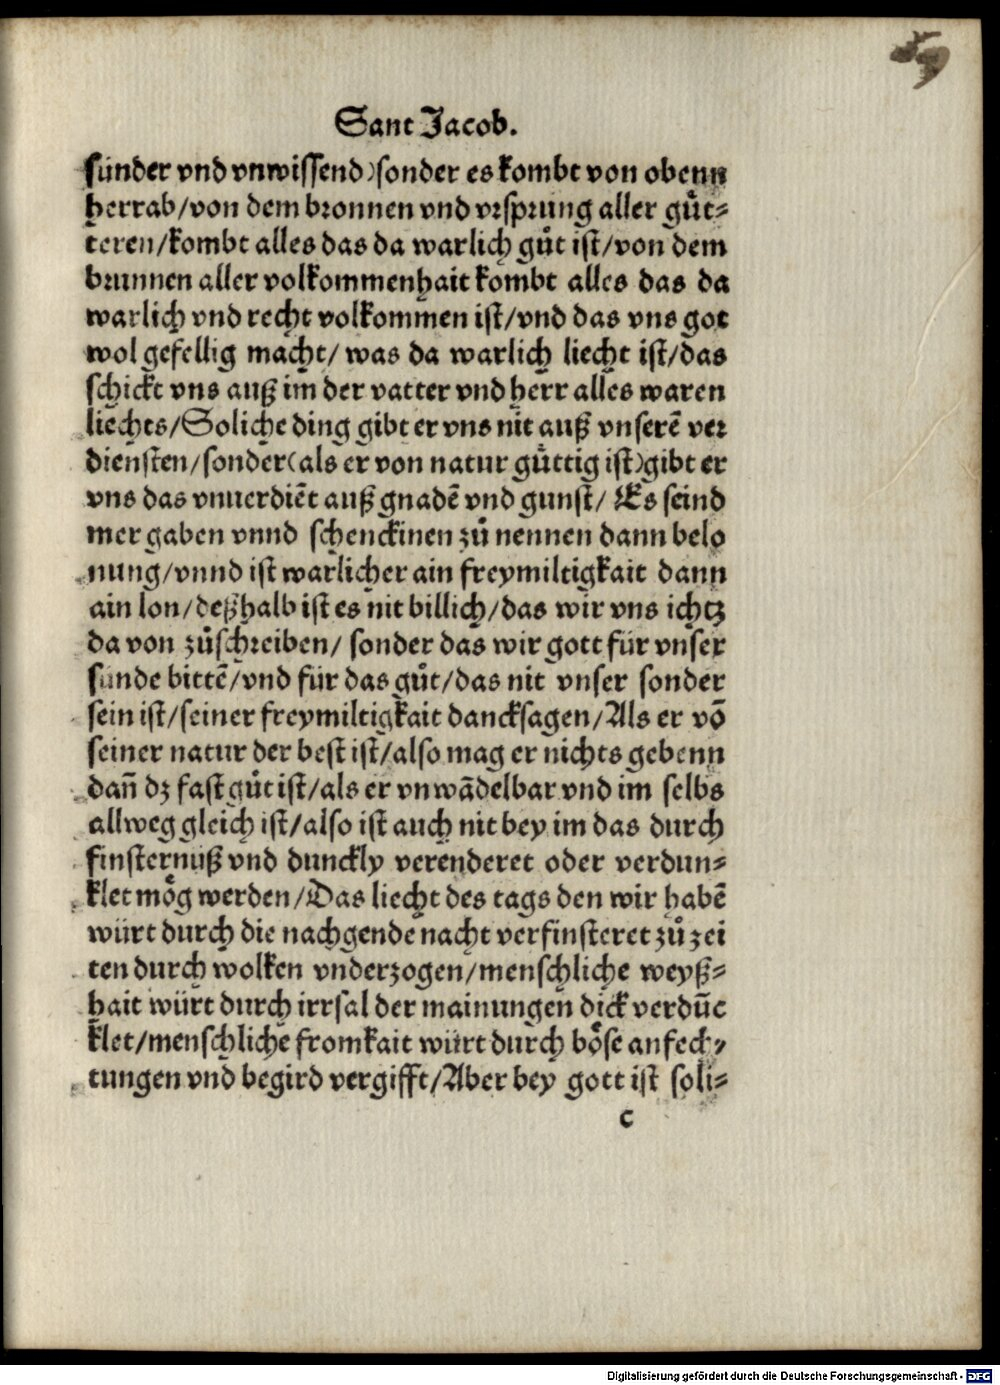 Sant Jacob.
sünder vnd vnwissend)sonder es kombt von obenn
herrab/von dem bronnen vnd vrsprung aller gůt⸗
teren/kombt alles das da warlich gůt ist/von dem
brunnen aller volkommenhait kombt alles das da
warlich vnd recht volkommen ist/vnd das vns got
wol gefellig macht/ was da warlich liecht ist/das
schickt vns auß im der vatter vnd herr alles waren
liechts/Soliche ding gibt er vns nit auß vnserē ver
diensten/sonder(als er von natur gůttig ist)gibt er
vns das vnuerdiēt auß gnadē vnd gunst/ Es seind
mer gaben vnnd schenckinen zů nennen dann belo
nung/vnnd ist warlicher ain freymiltigkait dann
ain lon/deßhalb ist es nit billich/das wir vns ichtz
da von zůschreiben/ sonder das wir gott für vnser
sünde bittē/vnd für das gůt/das nit vnser sonder
sein ist/seiner freymiltigkait dancksagen/Als er vō
seiner natur der best ist/also mag er nichts gebenn
dañ dz fast gůt ist/als er vnwādelbar vnd im selbs
allweg gleich ist/also ist auch nit bey im das durch
finsternuß vnd dunckly verenderet oder verdun⸗
klet moͤg werden/Das liecht des tags den wir habē
würt durch die nachgende nacht verfinsteret zů zei
ten durch wolken vnderzogen/menschliche weyß⸗
hait würt durch irrsal der mainungen dick verdūc
klet/menschliche fromkait würt durch boͤse anfech⸗
tungen vnd begird vergifft/Aber bey gott ist soli⸗
c
Digitalisierung gefördert durch die Deutsche Forschungsgemeinschaft - DFG